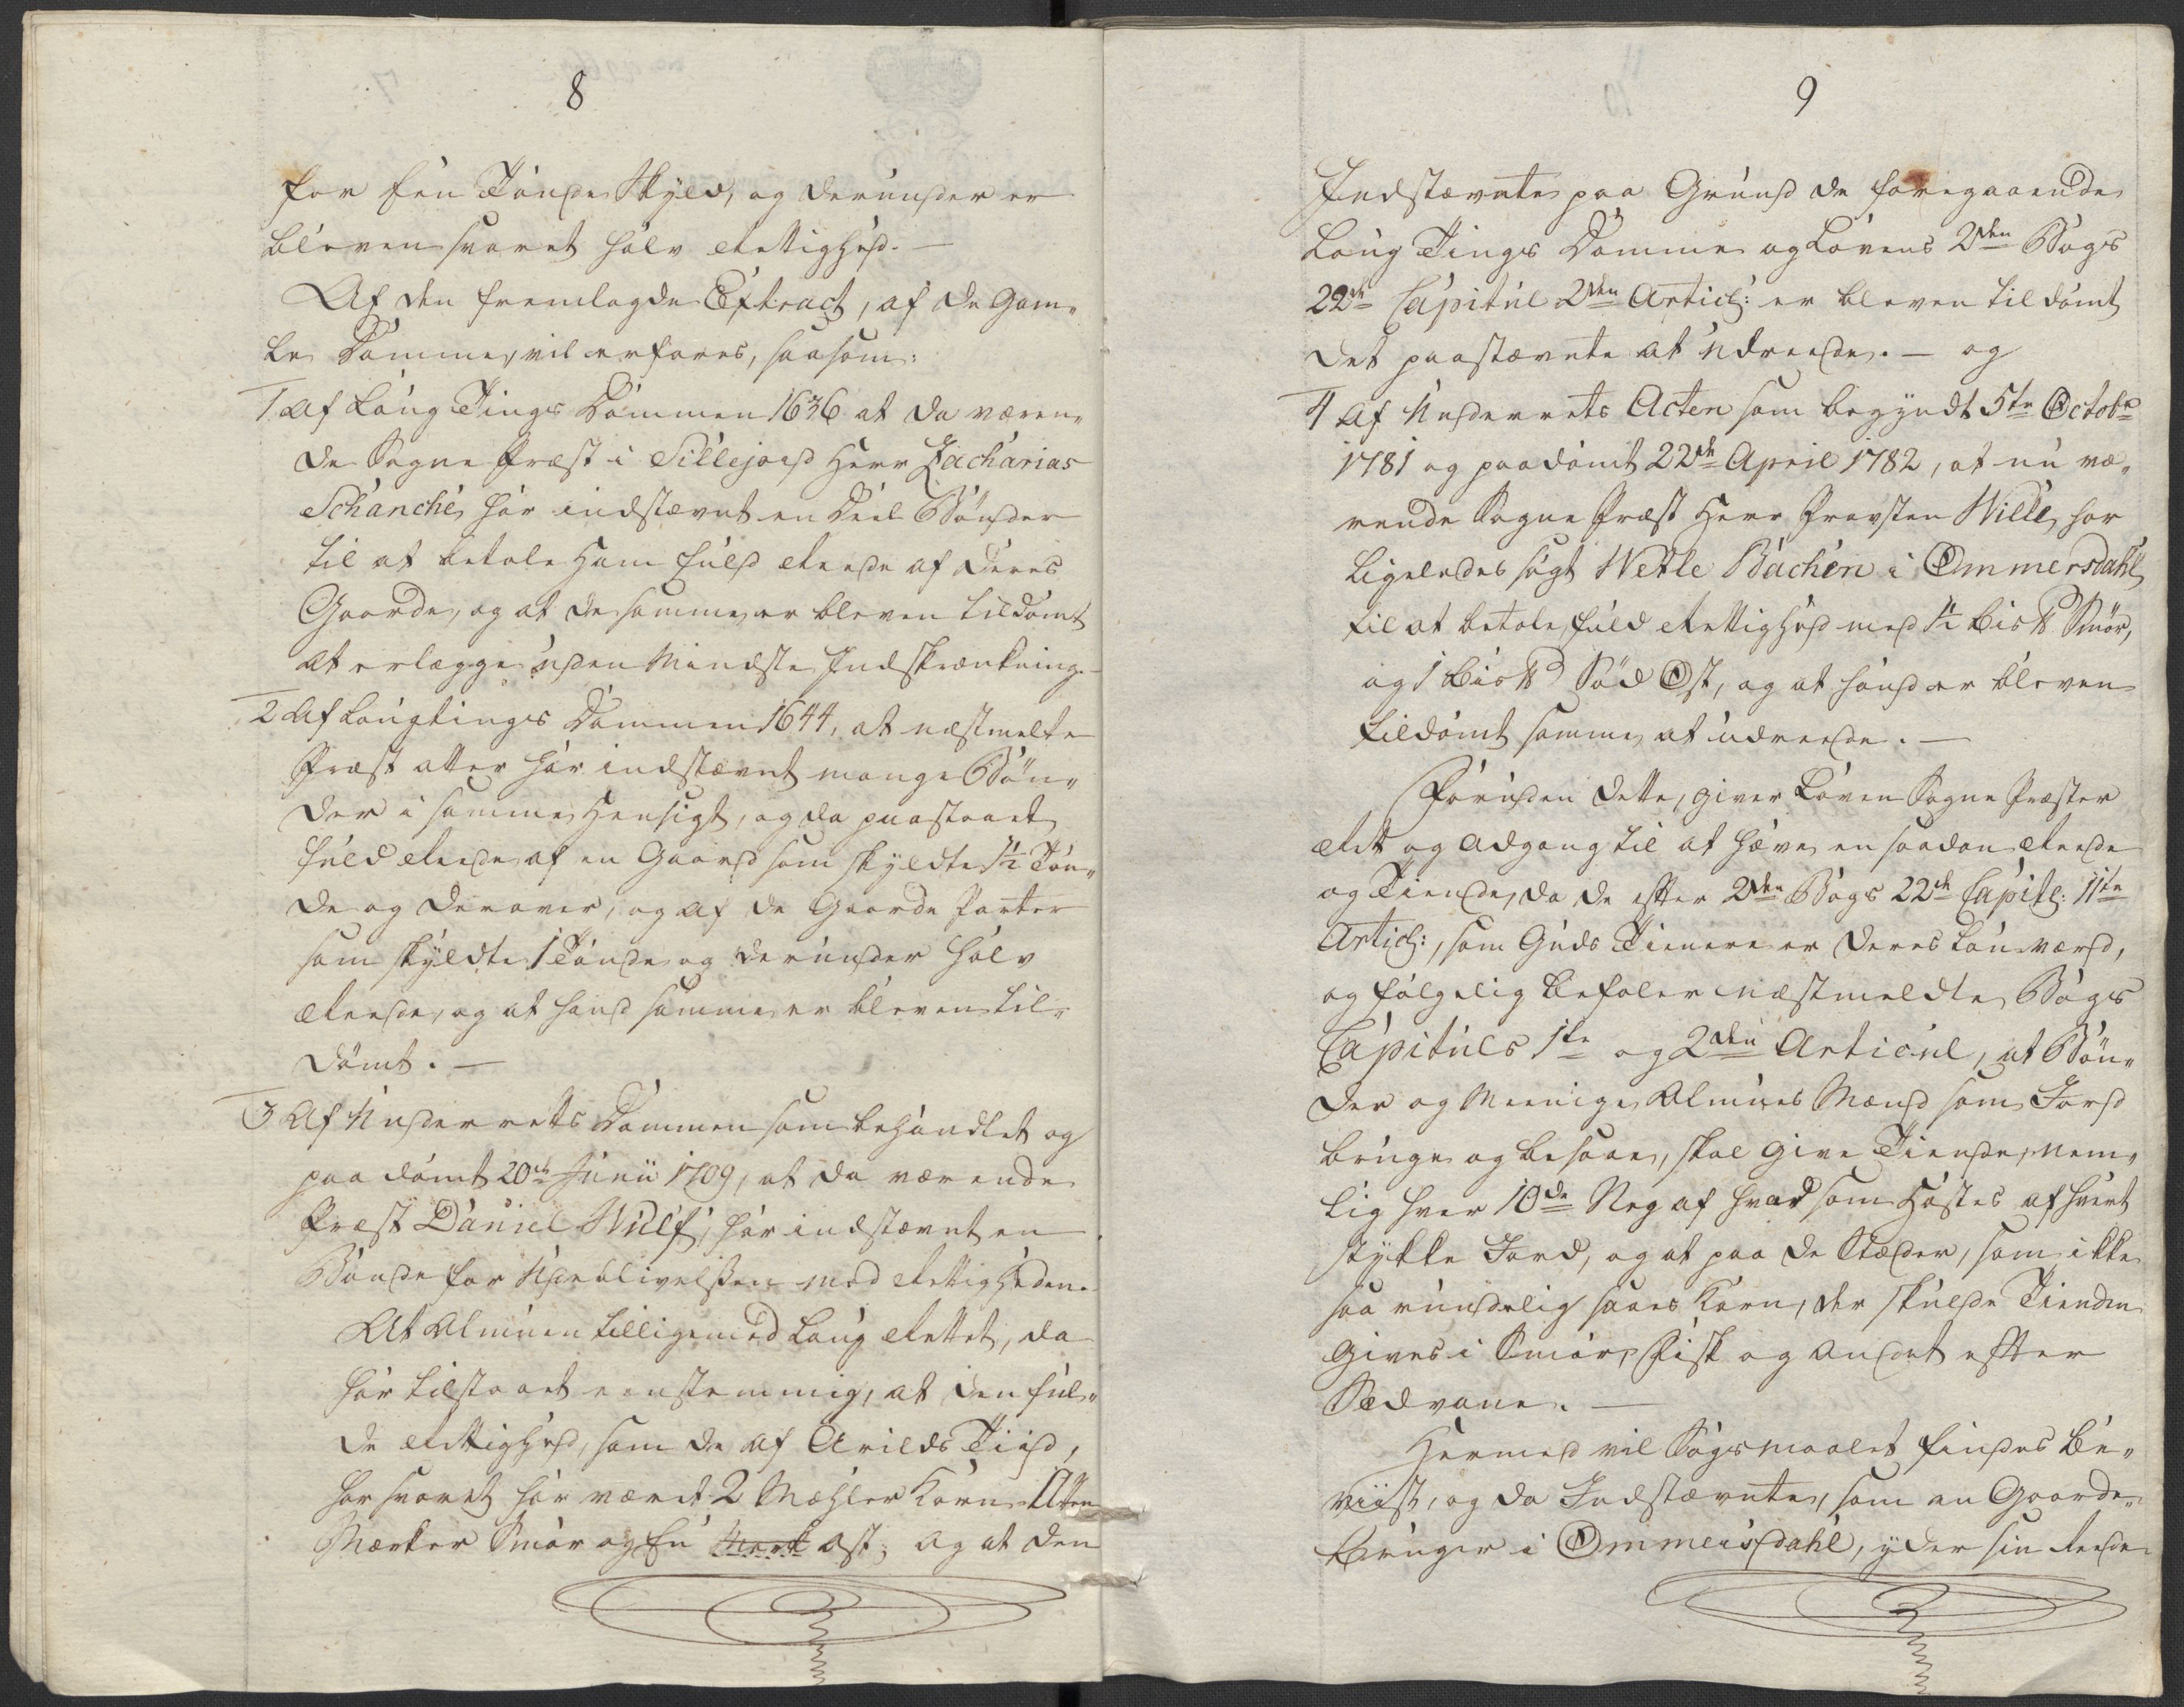 8
for een Tønde Skyld, og derunder er
bleven svaret halv Rettighed. —
Af den fremlagde Extract, af de Gam-
le Domme, vil erfares, saasom:
1 Af Laug Tings Dommen 1636 at da væren-
de Sogne Præst i Sillejord Herr Zacharias
Schanche, har indstævnt en Deel Bønder
til at betale Ham fuld Reede af deres
Gaarde, og at de samme er bleven tildømt
at erlægge uden Mindste Indskrænkning.
2 Af Laugtings Dommen 1644, at næstmelte
Præst atter har indstævnt mange Bøn-
der i samme Hensigt, og da paastaaet
fuld Reede af en Gaard som skyldte 1½ Tøn-
de og derover, og af de Gaarde Parter
som skyldte 1 Tønde og derunder halv
Reede, og at hand samme er bleven til-
dømt. —
3 Af Underretts Dommen som behandlet og
paadømt 20de Junii 1709, at da værende
Præst Daniel Wulf, har indstævnt en
Bonde for Udeblivelsen med Rettigheden
At Almuen tilligemed Laug Rettet, da
har tilstaaet eenstemmig, at den ful-
de Rettighed, som de af Arilds Tiid,
har svaret har været 2 Mæhler Korn Atten
Mærker Smør og En Mark Ost; og at den
9
Indstævnte paa Grund de foregaaende
Laug Tings Domme og Lovens 2den Bogs
22de Capitul 2den Articl: er bleven tildømt
det paastævnte at udreede. — og
4 Af Underrets Acten som begyndt 5te Octobr
1781 og paadømt 22de April 1782, at nu væ-
rende Sogne Præst Herr Provsten Wille, har
ligeledes søgt Wetle Bachen i Ommersdahl
til at betale fuld Rettighed med ½ Bis℔ Smør,
og 1 Bis℔ Sød Ost, og at hand er bleven
tildømt samme at udreede. —
Foruden dette, giver Loven Sogne Præster
Ret og Adgang til at hæve en saadan Reede
og Tiende, da de efter 2den Bogs 22de Capitl: 11te
Articl:, som Guds Tienere er deres Løn værd,
og følgelig befaler næstmeldte Bogs
Capituls 1te og 2den Articul, at Bøn-
der og Meenige Almues Mænd som Jord
bruge og besaae, skal give Tiende, nem-
lig hver 10de Neg af hvad som Høstes af hvert
stykke Jord, og at paa de Stæder, som ikke
saa rundelig saaes Korn, der skulde Tienden
gives i Smør, Fisk og andet efter
Sædvane. —
Hermed vil Søgsmaalet findes be-
viist, og da Indstævnte, som en Gaarde-
bruger i Ommersdahl, yder sin Reede